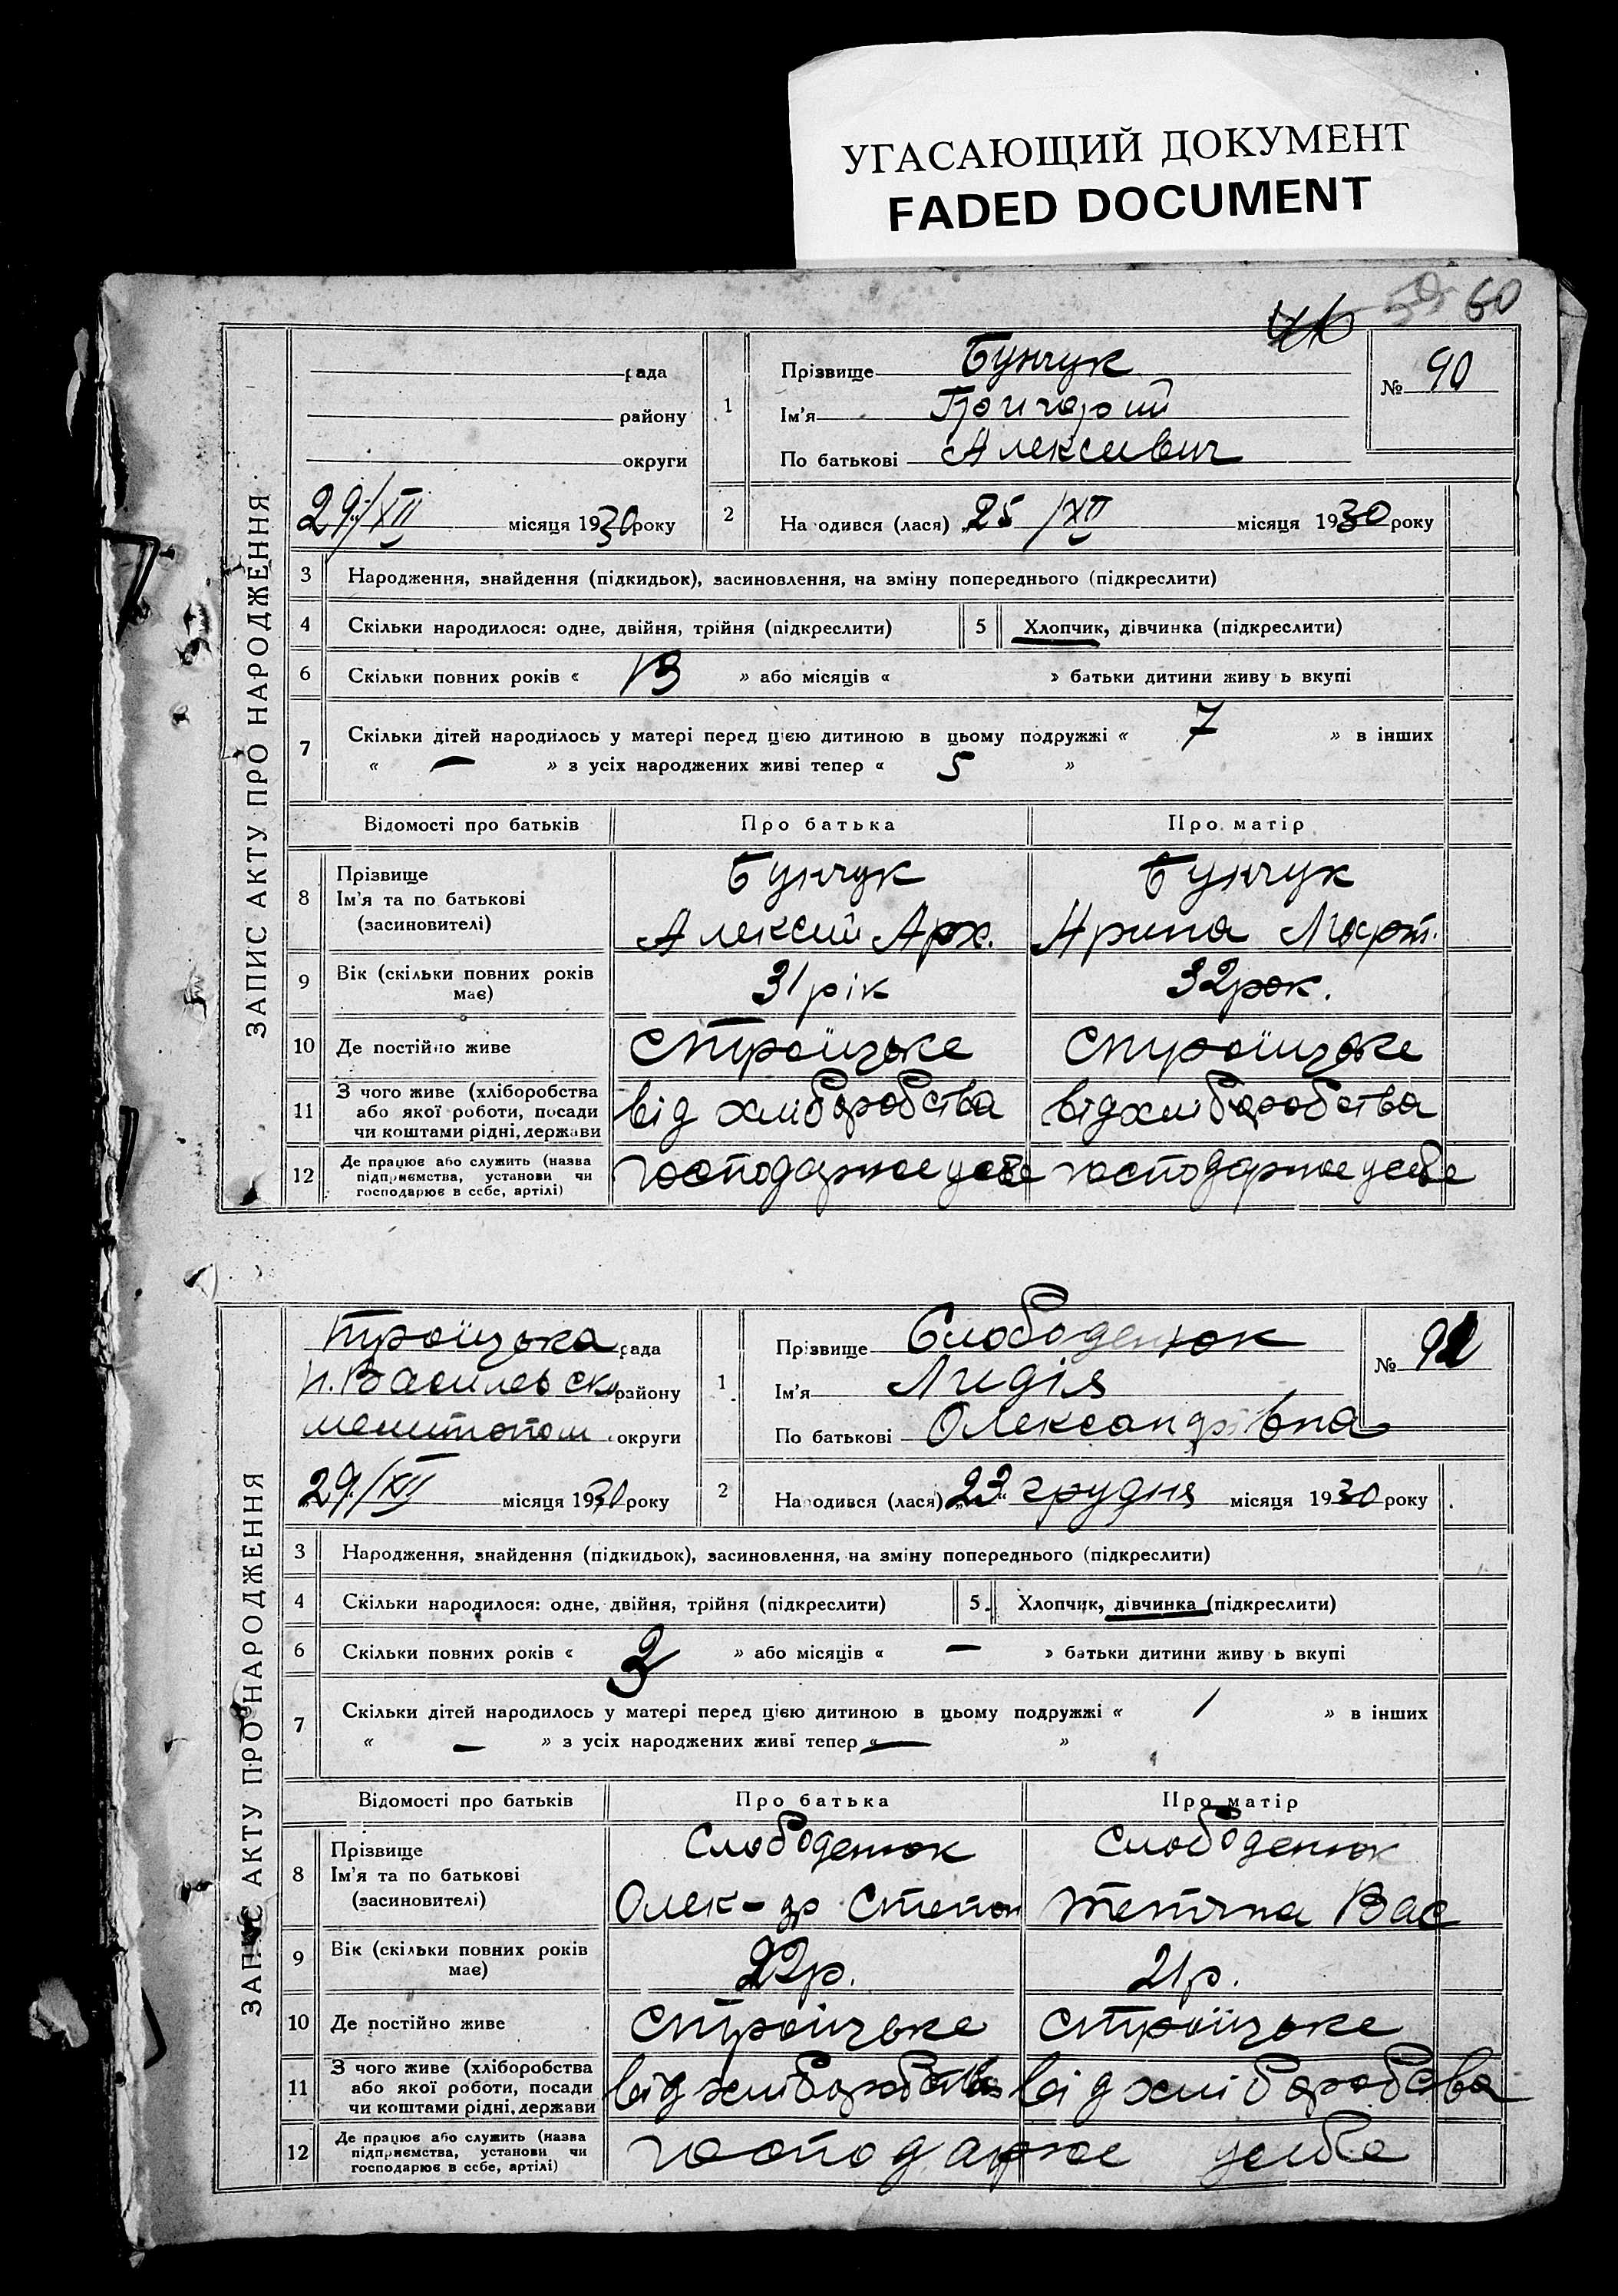 УГАСАЮЩИЙ ДОКУМЕНТ
FADED DOCUMENT
59 60
46
ЗАПИС АКТУ ПРО НАРОДЖЕННЯ
рада
району
округи
29/XII місяця 1930 року
1
Прізвище Бунчук
Ім'я Григорий
По батькові Алексиевич
№ 90
2
Народився (лася) „25 /XII місяця 1930 року
3 Народження, знайдення (підкидьок), засиновлення, на зміну попереднього (підкреслити)
4 Скільки народилося: одне, двійня, трійня (підкреслити)
5 Хлопчик, дівчинка (підкреслити)
6 Скільки повних років « 13 » або місяців « » батьки дитини живуть вкупі
7 Скільки дітей народилось у матері перед цією дитиною в цьому подружжі « 7 » в інших
« — » з усіх народжених живі тепер « 5 »
Відомості про батьків Про батька Про матір
8 Прізвище
Ім'я та по батькові
(засиновителі)
Бунчук
Алексий Арх.
Бунчук
Ирина Март.
9 Вік (скільки повних років
має)
31 рік
32 рок.
10 Де постійно живе
Строїцьке
Строїцьке
11 З чого живе (хліборобства
або якої роботи, посади
чи коштами рідні, держави
від хліборобства
від хліборобства
12 Де працює або служить (назва
підприємства, установи чи
господарює в себе, артілі)
господарює у себе
господарює у себе
ЗАПИС АКТУ ПРО НАРОДЖЕННЯ
Троїцька рада
Н. Василевськ району
Мелитопол округи
29/XII місяця 1930 року
1
Прізвище Слободенюк
Ім'я Лидія
По батькові Олександрівна
№ 92
2
Народився (лася) „23“ грудня місяця 1930 року
3 Народження, знайдення (підкидьок), засиновлення, на зміну попереднього (підкреслити)
4 Скільки народилося: одне, двійня, трійня (підкреслити)
5 Хлопчик, дівчинка (підкреслити)
6 Скільки повних років « 3 » або місяців « — » батьки дитини живуть вкупі
7 Скільки дітей народилось у матері перед цією дитиною в цьому подружжі « 1 » в інших
« — » з усіх народжених живі тепер « — »
Відомості про батьків Про батька Про матір
8 Прізвище
Ім'я та по батькові
(засиновителі)
Слободенюк
Олек-др Степан
Слободенюк
Тетяна Вас
9 Вік (скільки повних років
має)
22 р.
21 р.
10 Де постійно живе
Строїцьке
Строїцьке
11 З чого живе (хліборобства
або якої роботи, посади
чи коштами рідні, держави
від хліборобства
від хліборобства
12 Де працює або служить (назва
підприємства, установи чи
господарює в себе, артілі)
господарює у себе